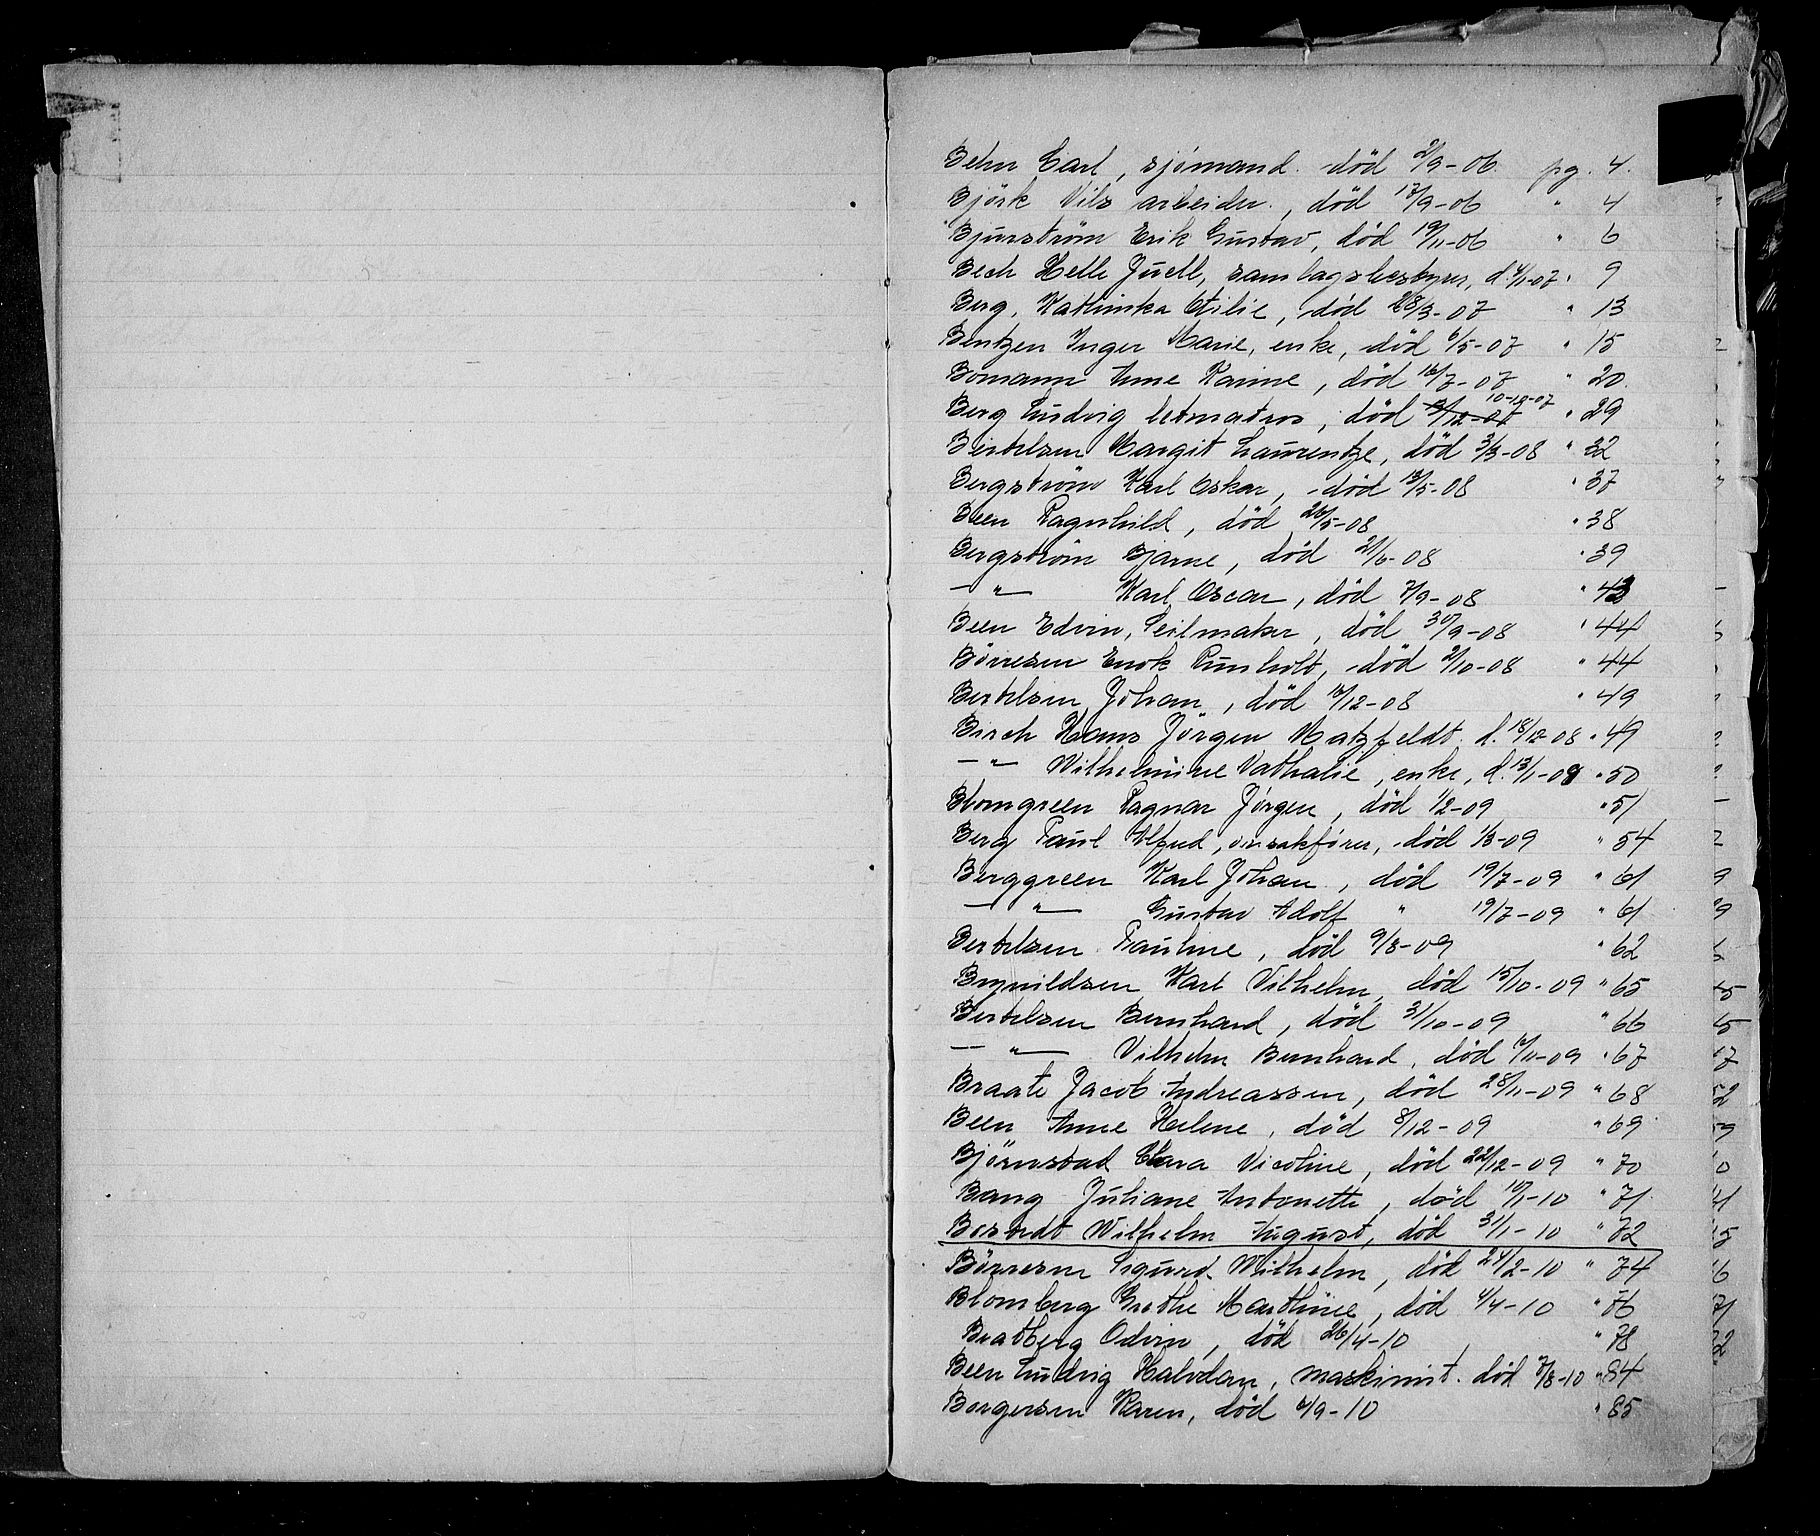 Behn Carl, sjömand. död 2/9-06. pg. 4.
Björk Nils arbeider., död 17/9-06 " 4
Bjurström Erik Gustav, död 19/11-06 " 6
Bech Helle Juell, samlagsbestyrer, d. 4/1-07 " 9
Berg, Kathinka Otilie, död 28/3-07 " 13
Bentzen Inger Marie, enke, död 6/5-07 " 15
Bomann Anne Karine, död 16/7-07 " 20.
Berg Ludvig letmatros, död 10-10-07 " 29
Bertelsen Margit Laurentze, död 3/3-08 " 32
Bergström Karl Oskar, död 13/5-08 " 37
Been Ragnhild, död 26/5-08 " 38
Bergström Bjarne, död 21/6-08 " 39
— " — Karl Oscar, död 7/9-08 " 43
Been Edvin, Seilmaker, död 30/9-08 " 44
Börresen Enok Runholt, död 2/10-08 " 44
Bertelsen Johan, död /12-08 " 49
Birch Hans Jörgen Matzfeldt. d. 18/12-08 " 49
— " — Wilhelmine Nathalie, enke, d. 13/1-09 " 50
Blomgreen Ragnar Jörgen, död 1/2-09 " 51
Berg Paul Alfred, ovrsakförer, död 1/3-09 " 54
Berggreen Karl Johan, död 19/7-09 " 61
— " — Gustav Adolf " 19/7-09 " 61
Bertelsen Pauline, död 9/8-09 " 62
Brynildsen Karl Vilhelm, död 15/10-09 " 65
Bertelsen Bernhard, död 31/10-09 " 66
— " — Vilhelm Bernhard, död /11-09 " 67
Braate Jacob Andreassen, död 28/11-09 " 68
Been Anne Helene, död 8/12-09 " 69
Björnstad Clara Nicoline, död 22/12-09 " 70
Bang Juliane Antonette, död 10/1-10 " 71
Berndt Wilhelm August, död 31/1-10 " 72
Börresen Sigurd Wilhelm, död 24/2-10 " 74
Blomberg Grethe Marthine, död 4/4-10 " 76
Bratberg Odvin, död 26/4-10 " 78
Been Ludvig Halvdan, maskinist. död 7/8-10 " 84
Borgersen Karen, död /9-10 " 85